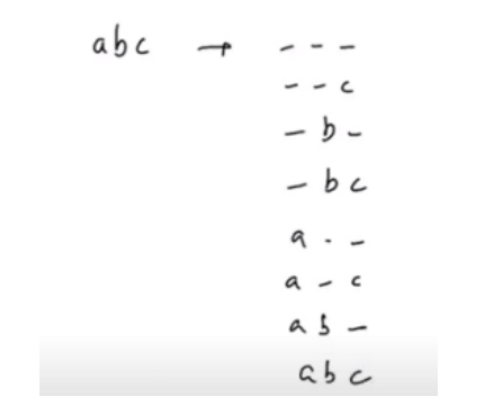 abc → - - -
- - c
- b -
- b c
a . -
a - c
a b -
a b c